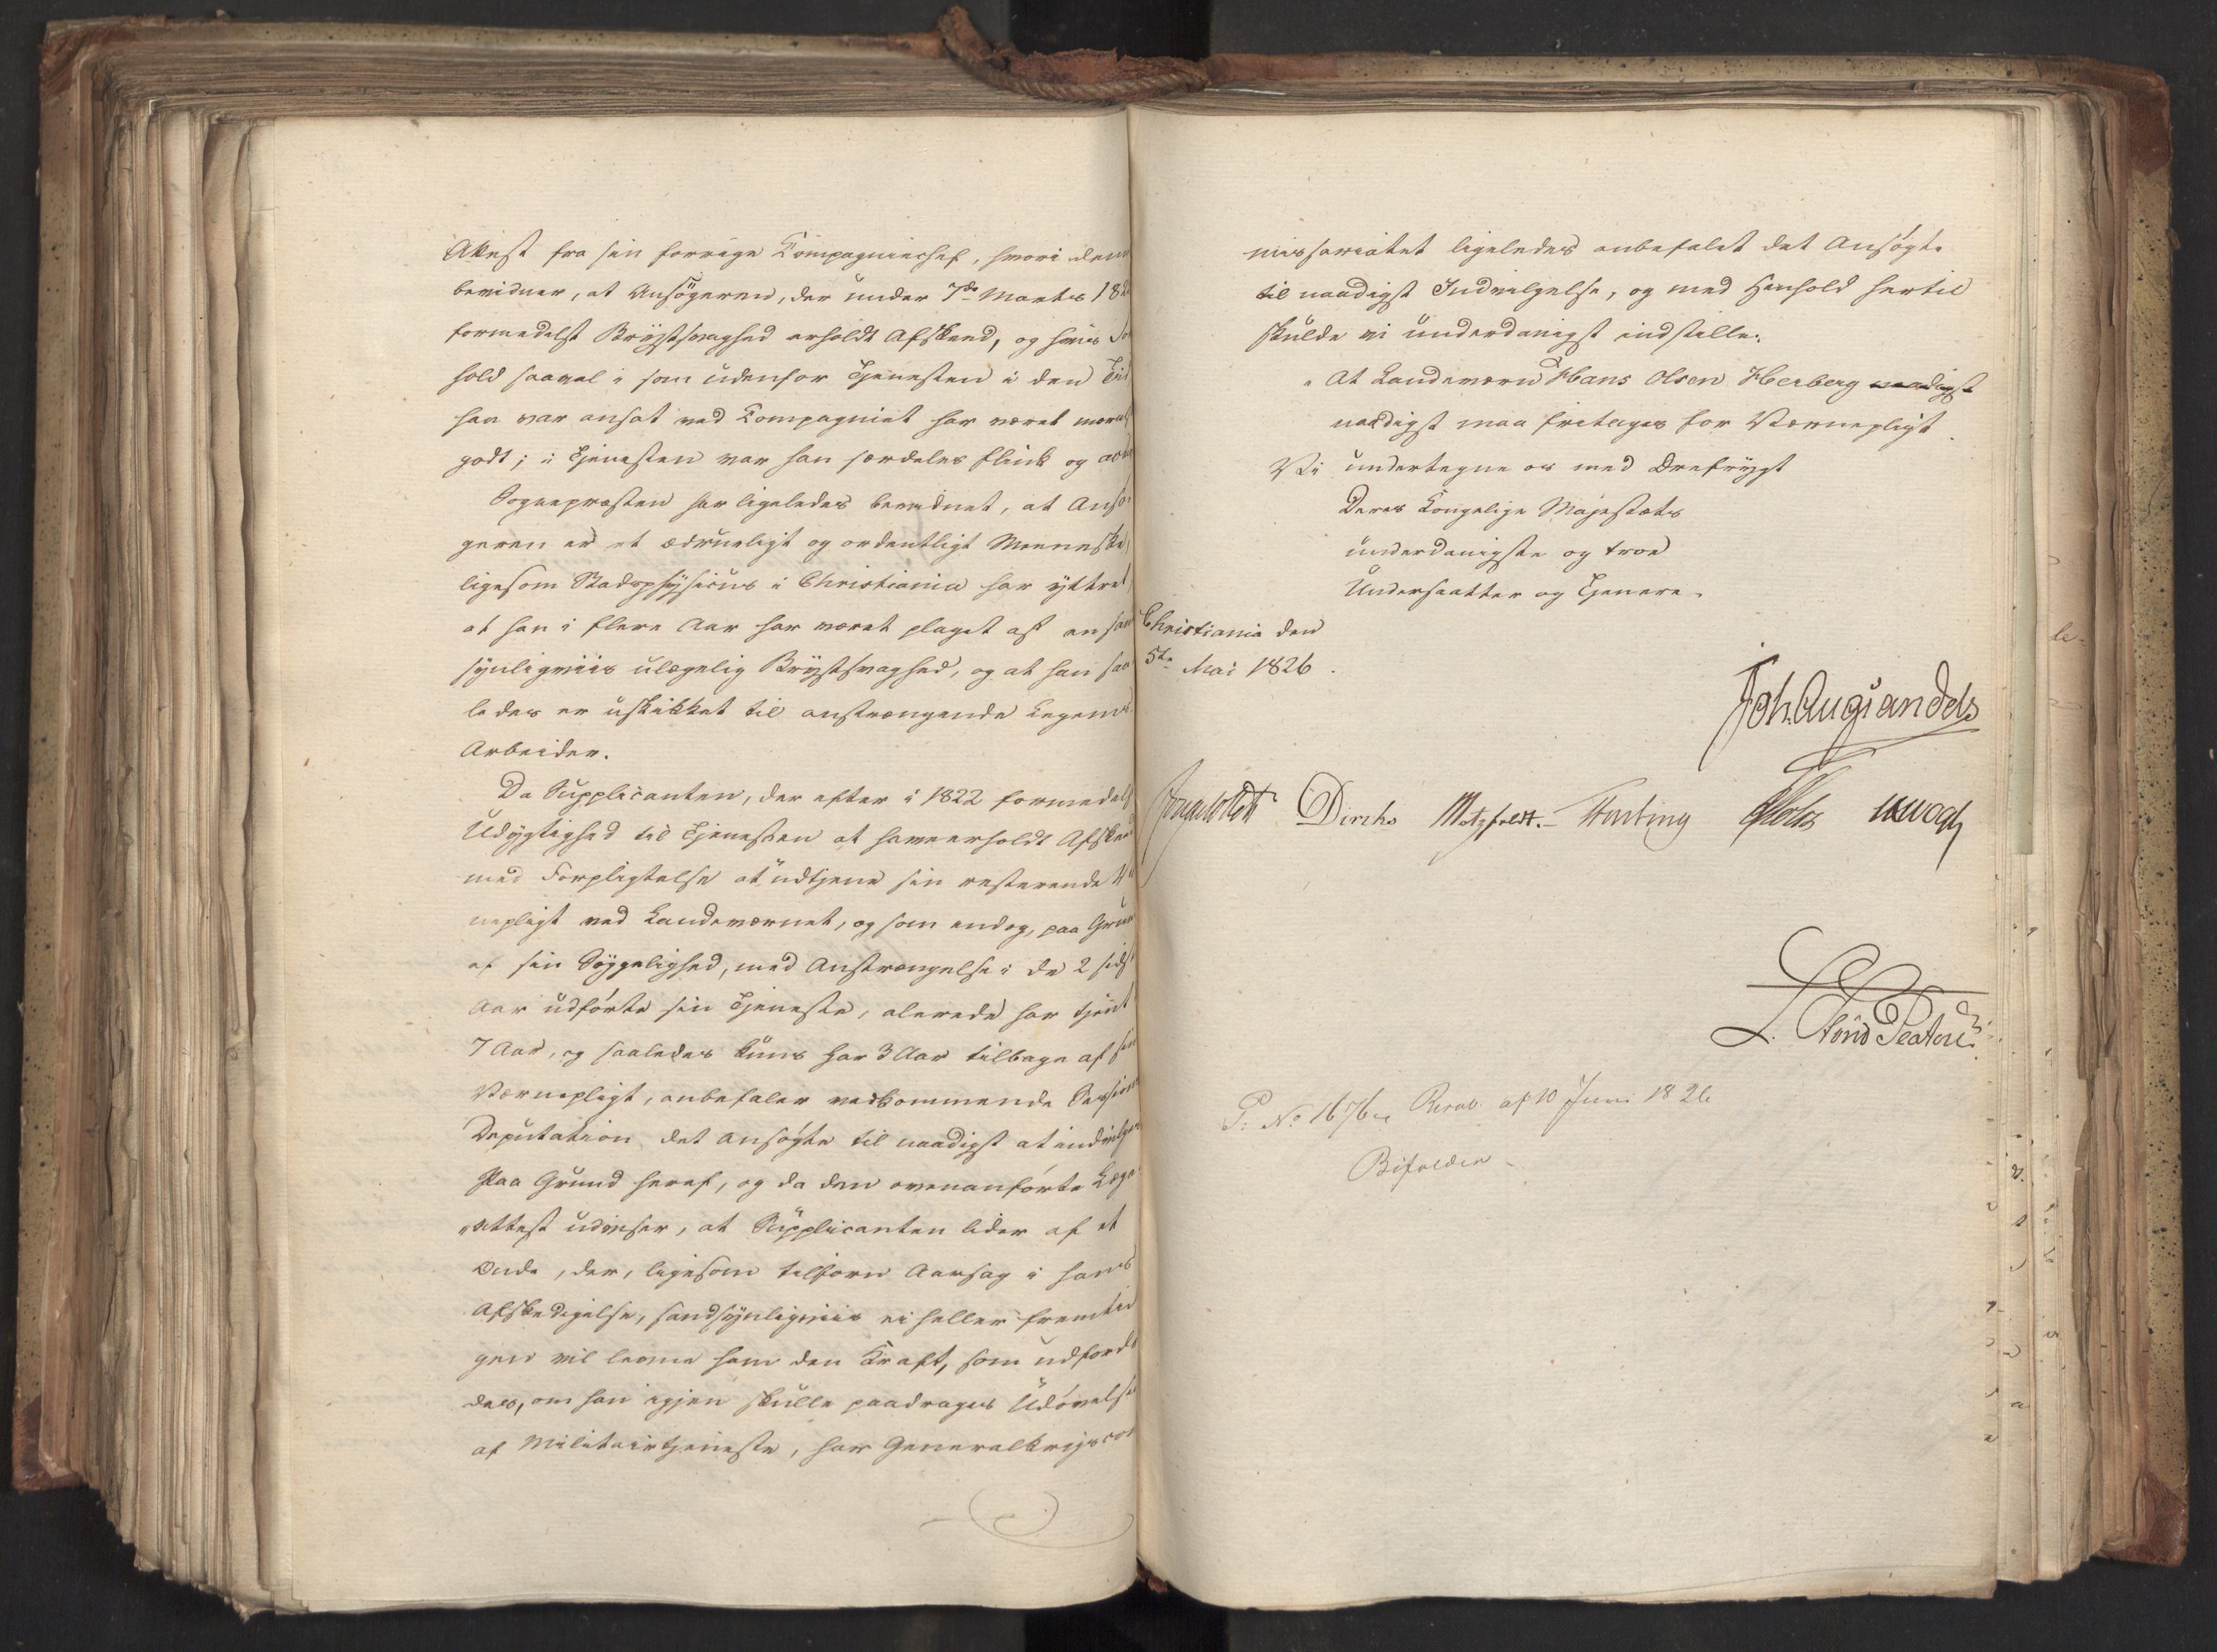 Attest fra sin forrige Compagniechef, hvori denne
bevidner, at Ansøgeren, der under 7de Marts 182
formedelst Brystsvaghed erholdt Afskeed, og hans For
hold saavel i som udenfor Tjenesten i den Tid
han var ansat ved Compagniet har været meget
godt; i Tjenesten var han særdeles flink og
Sognepræsten har ligeledes bevidnet, at Ansø-
geren er et ædrueligt og ordentligt Menneske,
ligesom Stadsphysicus i Christiania har yttret,
at han i flere Aar har været plaget af en sand
synligviis ulægelig Brystsvaghed, og at han saa
ledes er uskikket til anstrængende Legems
Arbeider.
Da Supplicanten, der efter i 1822 formedelst
Udygtighed til Tjenesten at have erholdt Afskeed
med Forpligtelse at udtjene sin resterende Vær
nepligt ved Landeværnet, og som endog, paa Grund
af sin Sygelighed, med Anstrængelse i de 2 sidste
Aar udførte sin Tjeneste, alerede har tjent
7 Aar, og saaledes kuns har 3 Aar tilbage af sin
Værnepligt, anbefaler vedkommende Sessions
Deputation det Ansøgte til naadigst at indvilges
Paa Grund heraf, og da den ovenanførte Læge
Attest udviser, at Supplicanten lider af et
Onde, der, ligesom tilforn Aarsag i hans
Afskedigelse, sandsynligviis ei heller fremtid
gen vil levne ham den Kraft, som udfordre
des, om han igjen skulle paadrages Udøvelse
af Militairtjeneste, har Generalkrigscom
missariatet ligeledes anbefalet det Ansøgte
til naadigst Indvilgelse, og med Henhold hertil
skulde vi underdanigst indstille:
"At Landeværn Hans Olsen Herberg naadigst
naadigst maa fritages for Værnepligt.
Vi undertegne os med Ærefrygt
Deres Kongelige Majestæts
underdanigste og troe
Undersaatter og Tjenere.
Christiania den
5te Mai 1826.
Joh. Aug. Sandels
Diriks Motzfeldt. Fasting Holst Krogh
P: No 1676 Resol. af 10 Juni 1826
Bifalden